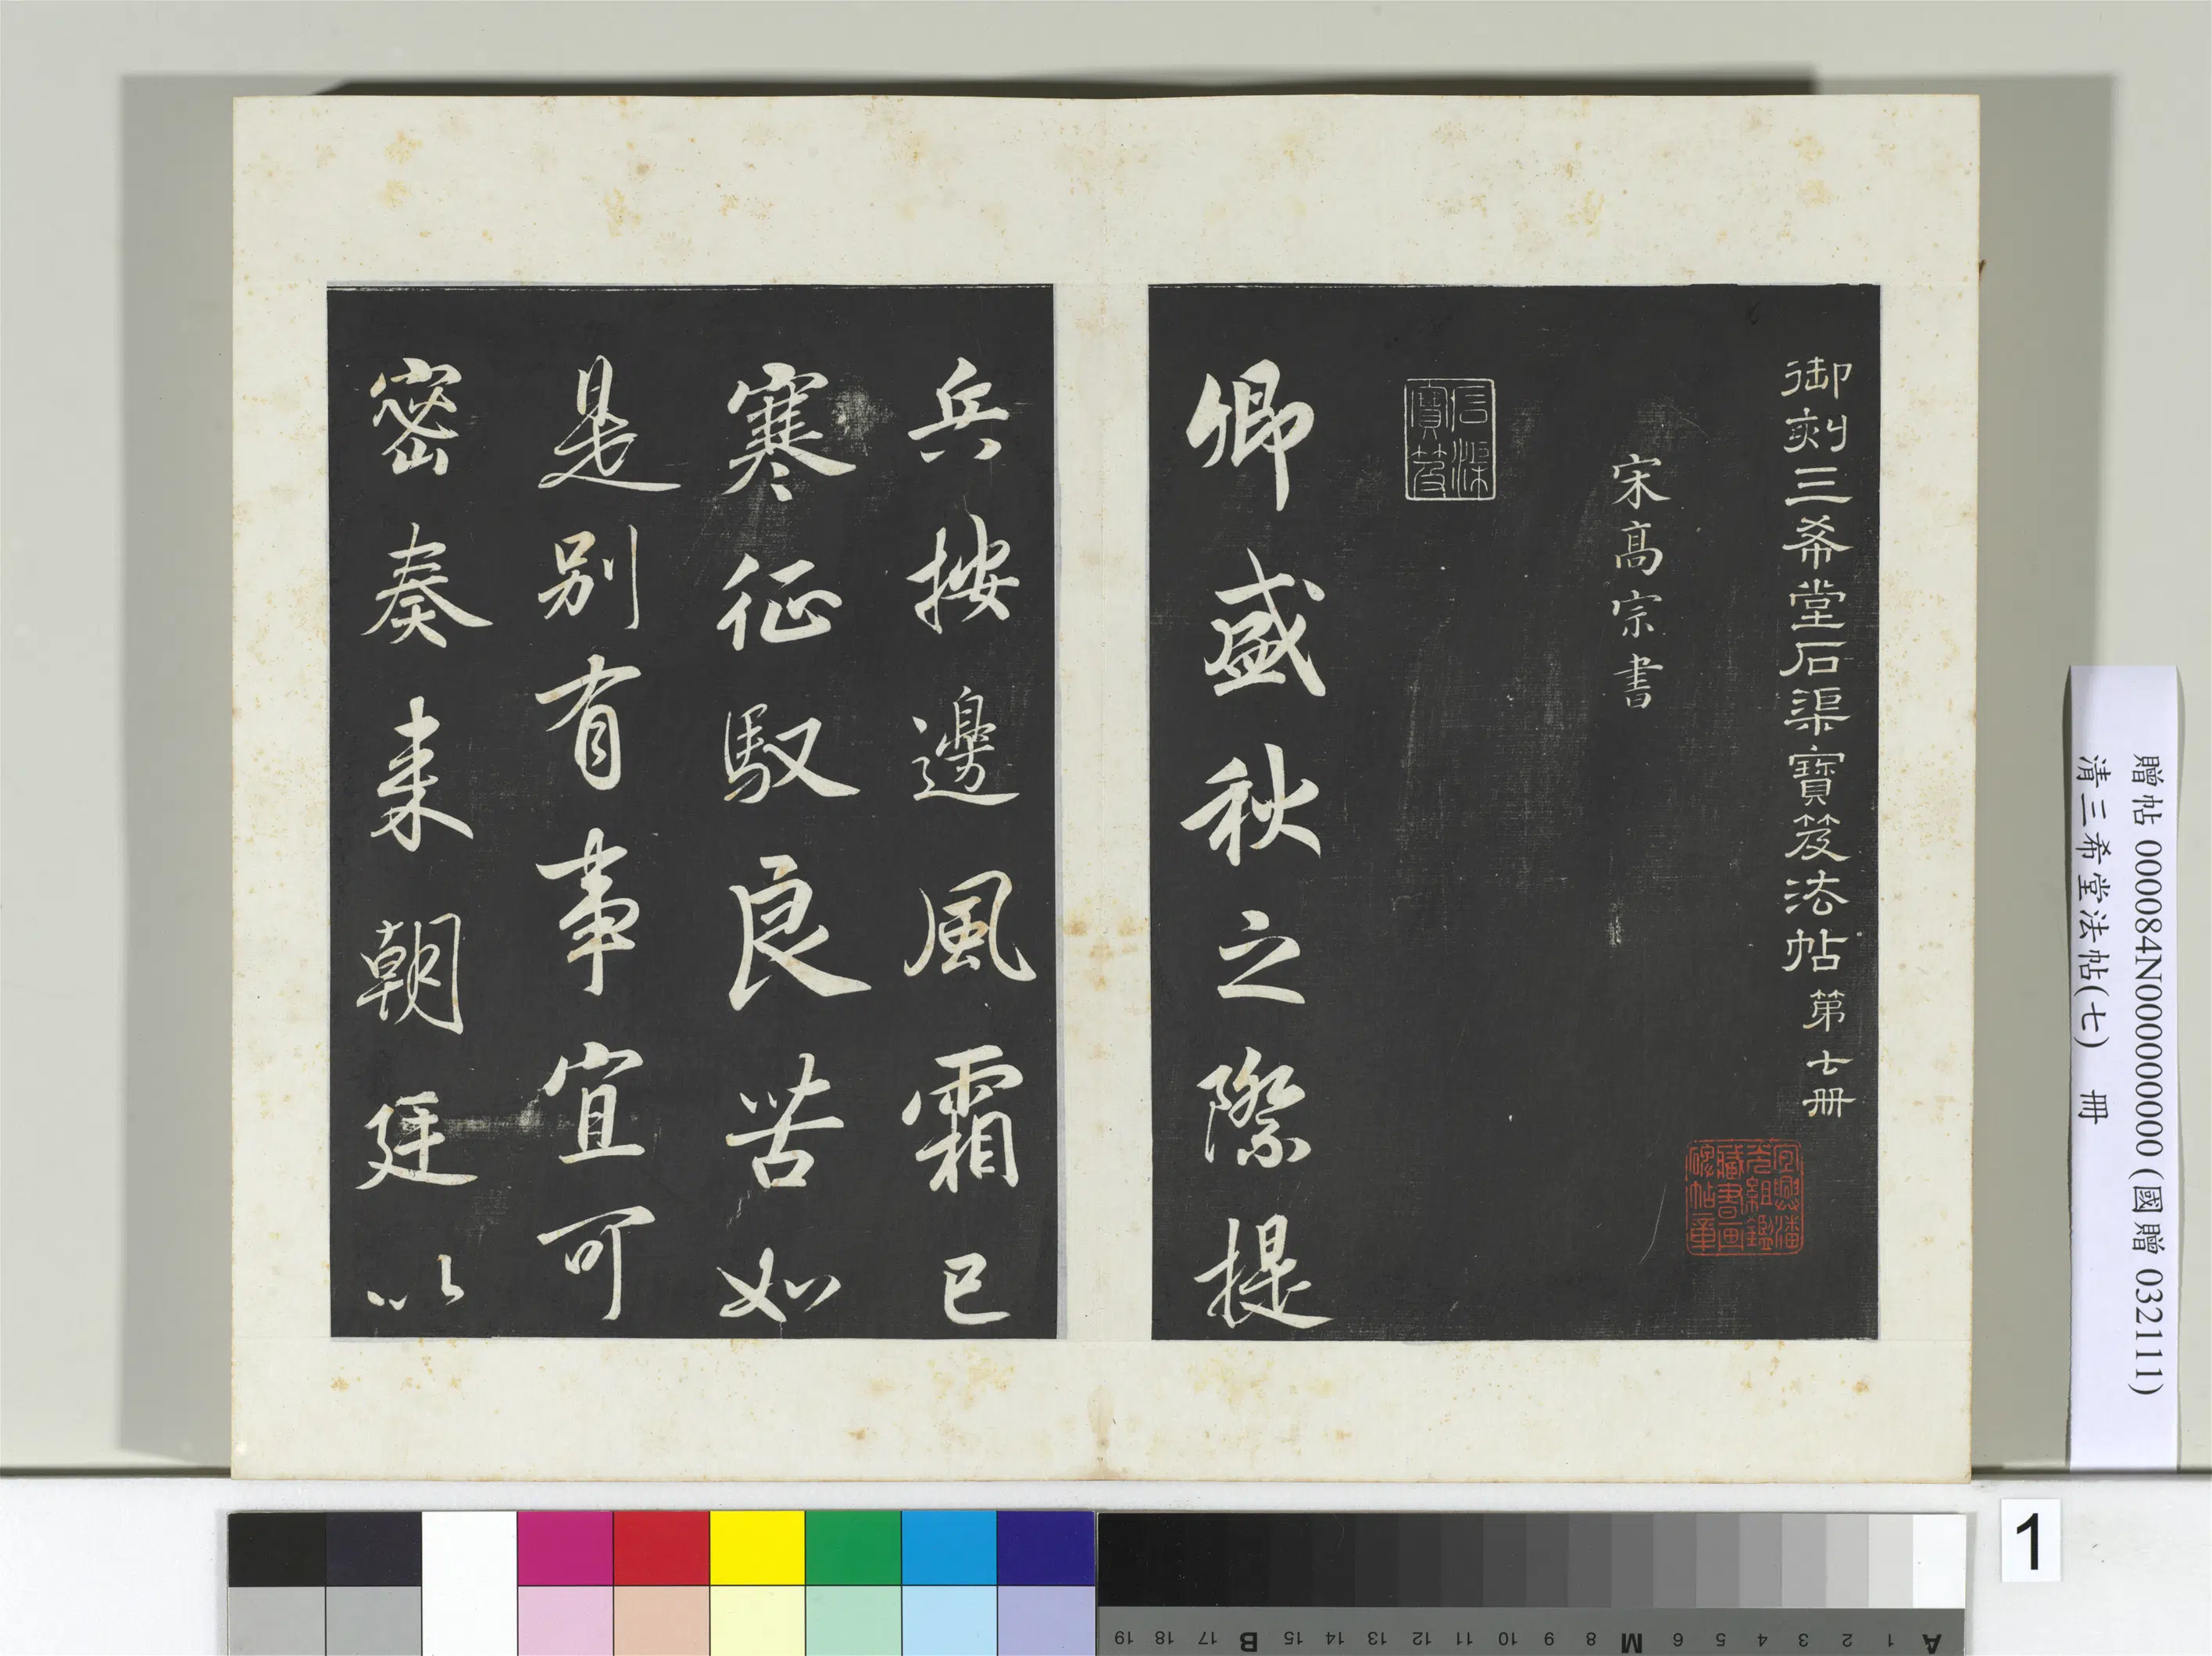 御刻三希堂石渠寶笈法帖第七冊
宋高宗書
石渠
寶笈
卿盛秋之際提
兵按邊風霜已
寒征馭良苦如
是別有事宜可
密奏来朝廷以
宜興潘
元組鑑
藏書画
碑帖章
贈帖 000084N000000000 (國贈 032111)
清三希堂法帖(七) 冊
1
A 1 2 3 4 5 6 M 8 9 10 11 12 13 14 15 B 17 18 19